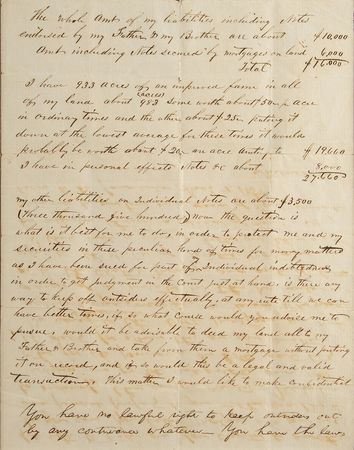 The whole Amt of my liabilities including Notes
endorsed by my Father & my Brother are about $10,000
Amt including Notes secured by mortgages on land 6,000
Total $16.000
I have 933 Acres of an improved farm in all
(acres)
of my land about 983 some worth about $50 pr acre
in ordinary times and the other about $25 putting it
down at the lowest average for these times it would
probably be worth about $20 an acre Amtg to $19,660
I have in personal effects Notes &c about 8,000
27.660
my other liabilities on Individual Notes are about $3,500
(Three thousand five hundred) Now the question is
what is it best for me to do, in order to protect me and my
securities in these peculiar hard times for money matters
as I have been sued for part of Individual indebtedness
in order to get judgment in the Court just at hand. is there any
way to keep off outsiders effectually, at any rate till we can
have better times, if so what course would you advise me to
pursue, would it be advisable to deed my land all to my
Father & Brother and take from them a mortgage without putting
it on record, and if so would this be a legal and valid
transaction. This matter I would like to make confidential
You have no lawful right to keep outsiders out
by any contrivance whatever You have the laws